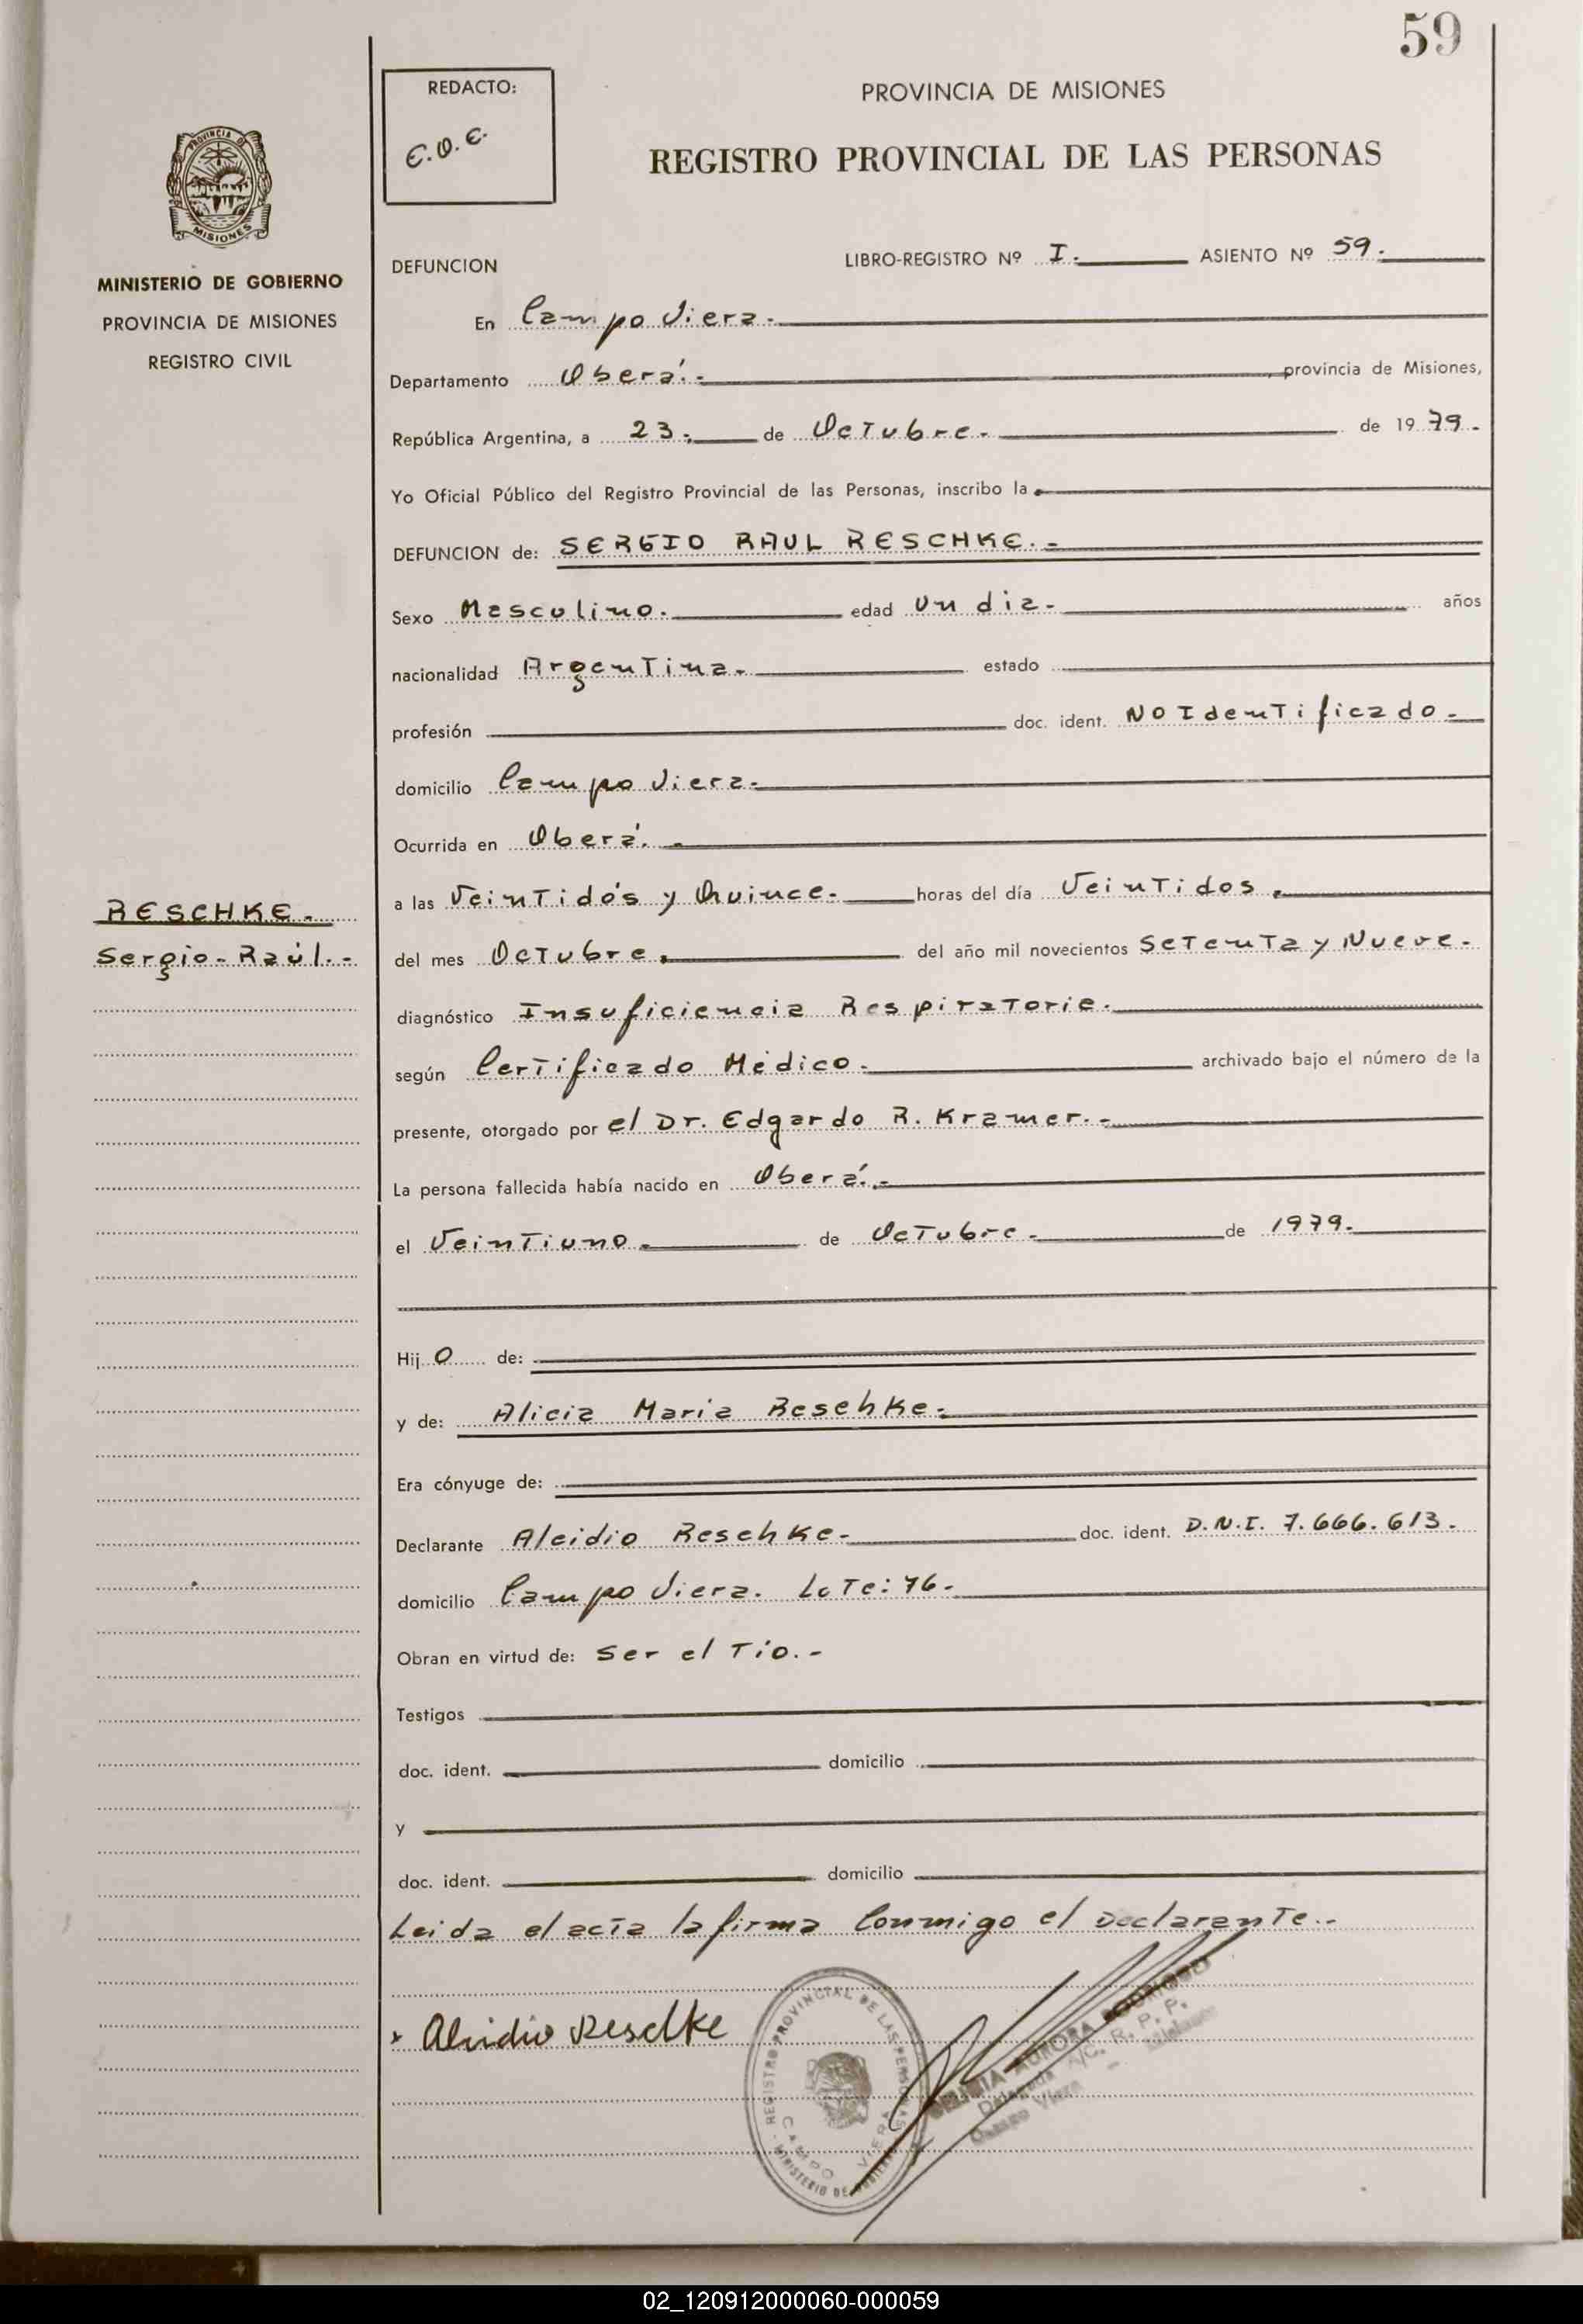 59
REDACTO:
PROVINCIA DE MISIONES
REGISTRO PROVINCIAL DE LAS PERSONAS
PROVINCIA DE
MISIONES
MINISTERIO DE GOBIERNO
PROVINCIA DE MISIONES
REGISTRO CIVIL
DEFUNCION LIBRO-REGISTRO Nº I. ASIENTO Nº 59.
En Campo Viera.
Departamento Oberá. provincia de Misiones,
República Argentina, a 23. de Octubre. de 19 79.
Yo Oficial Público del Registro Provincial de las Personas, inscribo la
DEFUNCION de: SERGIO RAUL RESCHKE.-
Sexo Masculino. edad Un dia. años
nacionalidad Argentina. estado
profesión doc. ident. NO Identificado.
domicilio Campo Viera.
Ocurrida en Oberá.
a las Veintidós y Quince. horas del día Veintidos.
del mes Octubre. del año mil novecientos Setenta y Nueve.
RESCHKE.
Sergio-Raúl.-
diagnóstico Insuficiencia Respiratoria.
según Certificado Médico. archivado bajo el número de la
presente, otorgado por el Dr. Edgardo R. Kramer.-
La persona fallecida había nacido en Oberá.-
el Veintiuno. de Octubre. de 1979.
Hij o de:
y de: Alicia Maria Reschke.
Era cónyuge de:
Declarante Alcidio Reschke- doc. ident. D.N.I. 7.666.613.
domicilio Campo Viera. Lote: 76.
Obran en virtud de: Ser el Tío.-
Testigos
doc. ident. domicilio
y
doc. ident. domicilio
Leida el acta la firma Conmigo el declarante..
Alcidio Reschke
REGISTRO PROVINCIAL DE LAS PERSONAS
MINISTERIO DE
CAMPO VIERA
AURORA
A/C. R. P. P.
Campo Viera - Misiones
02_120912000060-000059